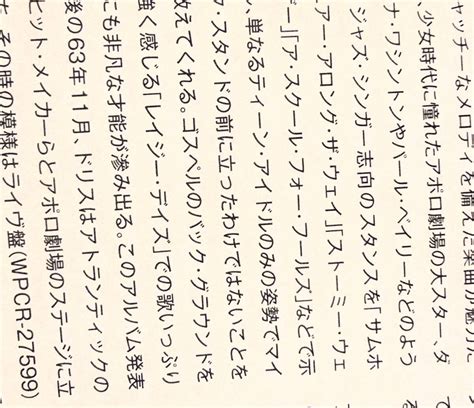 ャッチーなメロディを備えた楽曲が魅力
、少女時代に憧れたアポロ劇場の大スター、ダ
ナ・ワシントンやパール・ベイリーなどのよう
ジャズ・シンガー志向のスタンスを「サムホ
アー・アロング・ザ・ウェイ」「ストーミー・ウェ
ザー」「ア・スクール・フォー・フールズ」などで示
い、単なるティーン・アイドルのみの姿勢でマイ
ク・スタンドの前に立ったわけではないことを
教えてくれる。ゴスペルのバック・グラウンドを
強く感じる「レイジー・デイズ」での歌いっぷり
にも非凡な才能が滲み出る。このアルバム発表
後の63年11月、ドリスはアトランティックの
ヒット・メイカーらとアポロ劇場のステージに立
た。その時の模様はライヴ盤(WPCR-27599)